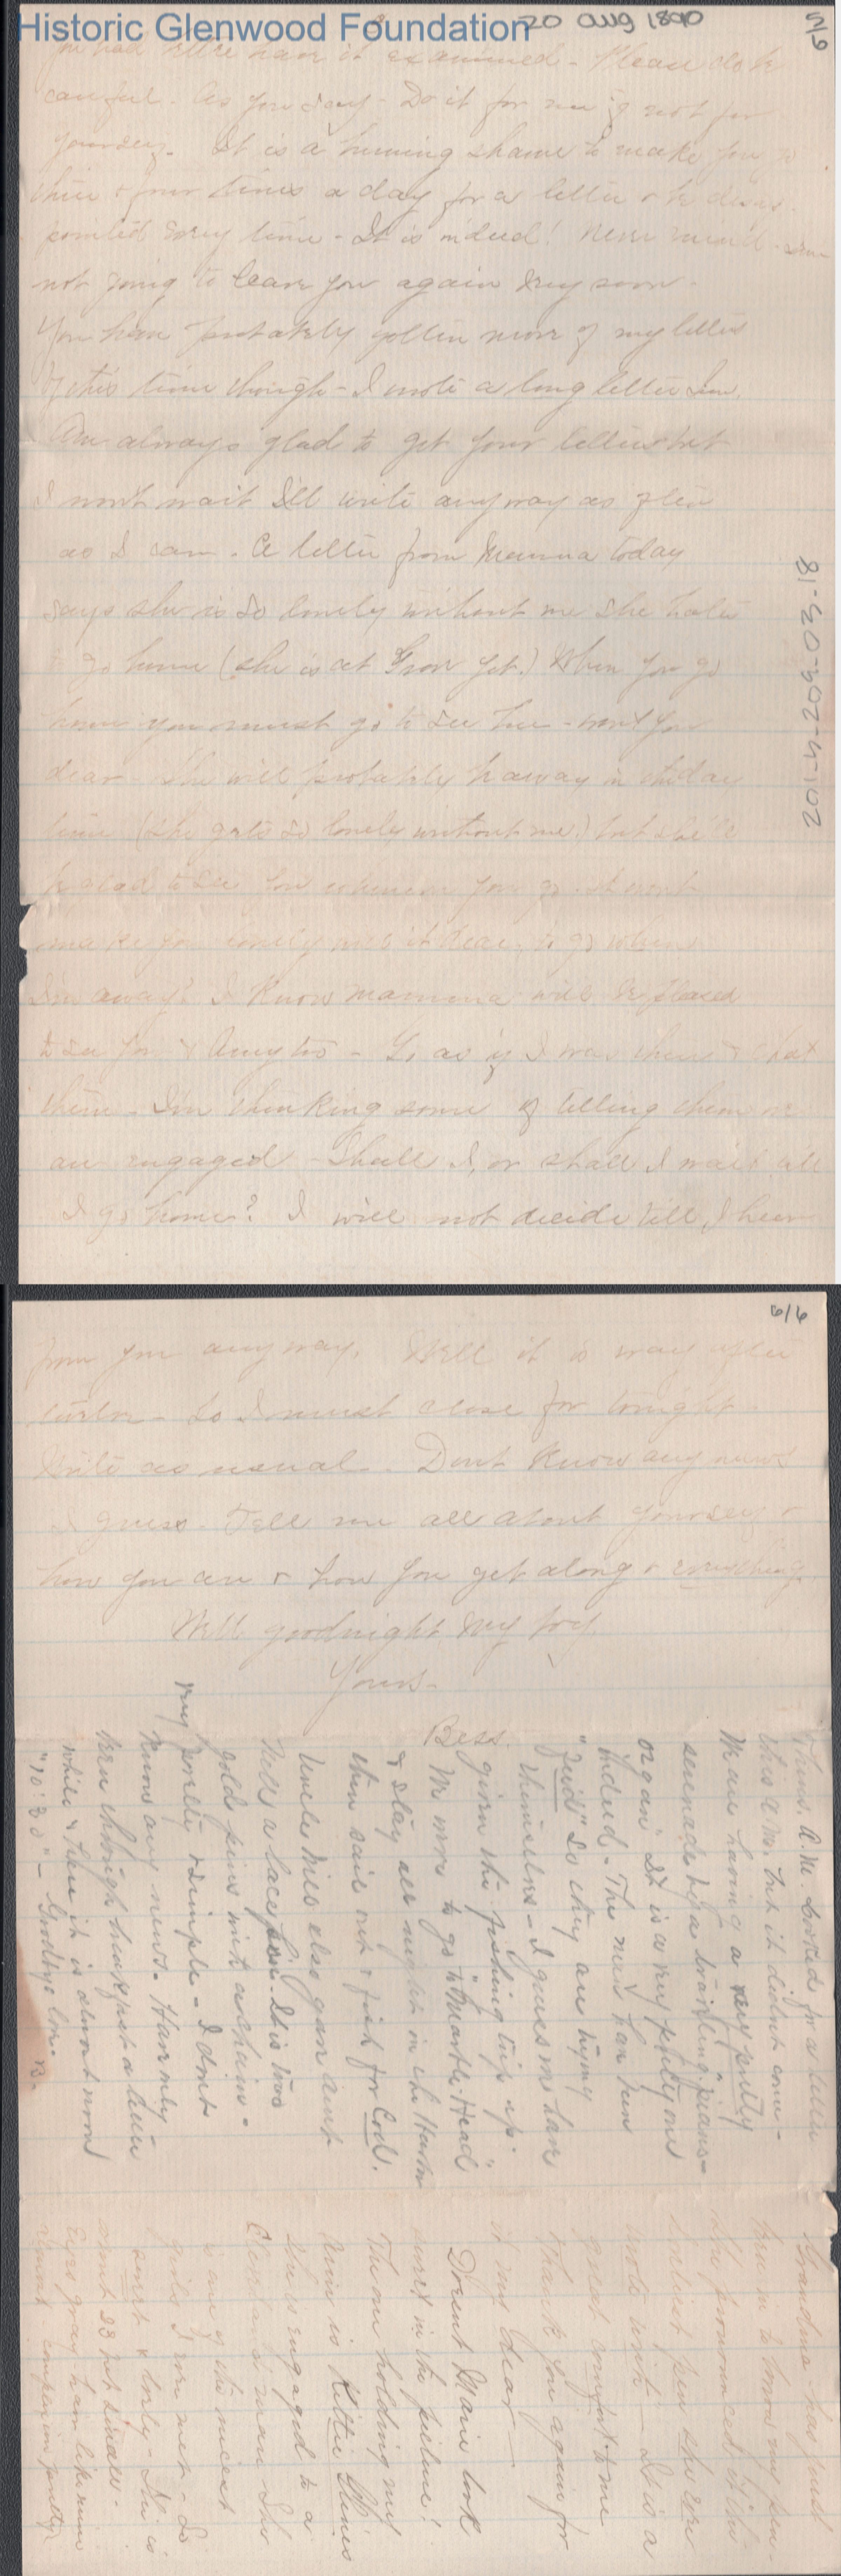 Historic Glenwood Foundation
20 Aug 1890
5/6
you had better have it examined - Please do be
careful - As you say - Do it for me if not for
yourself. It is a burning shame to make you go
three & four times a day for a letter & be disap-
pointed every time - It is indeed! Never mind - I'm
not going to leave you again very soon -
You have probably gotten more of my letters
by this time though - I wrote a long letter Sun.
Am always glad to get your letters but
I won't wait I'll write anyway as often
as I can. A letter from Mamma today
says she is so lonely without me she hates
to go home (she is at Grove yet.) When you go
home you must go to see her - won't you
dear - She will probably be away in the day
time (she gets so lonely without me.) but she'll
be glad to see you whenever you go. It won't
make you lonely will it dear, to go when
I'm away? I know Mamma will be pleased
to see you & Amy too - Go as if I was there & chat
them - I'm thinking some of telling them we
are engaged - Shall I, or shall I wait till
I go home? I will not decide till I hear
201-4-204-03-18
6/6
from you any way. Well it is way after
twelve - So I must close for tonight -
Write as usual - Don't know any news
I guess - Tell me all about yourself &
how you are & how you get along & everything.
Well goodnight my boy
Yours -
Bess.
Thurs. A.M. Looked for a letter
this A.M. but it didn't come -
We are having a very pretty
serenade by a traveling "piano-
organ" It is a very pretty one
indeed - The men have been
"feid" so they are trying
themselves - I guess we have
given this fishing trip up -
We were to go to "Marble-Head"
& stay all night in the Harbor
then sail out & fish for Cod.
Uncle Miles also gave Aunt
Nell a lace pin - It is two
gold pins with a chain -
very pretty & simple - I don't
know any news - Have only
been through breakfast a little
while & here it is almost noon
"10:30" - Goodbye love B.
Grandma has just
been in to borrow my pen -
She pronounced it the
best pen she ever
wrote with - It is a
great comfort to me
Thank you again for
it my dear -
Doesn't Marie look
sweet in the picture!
The one holding my
is Kittie Hines
she is engaged to a
Cleveland man She
is one of the nicest
girls I ever met - So
sweet & lovely - She is
about 23 but small -
Eyes gray, hair like mine
almost - complexion pretty